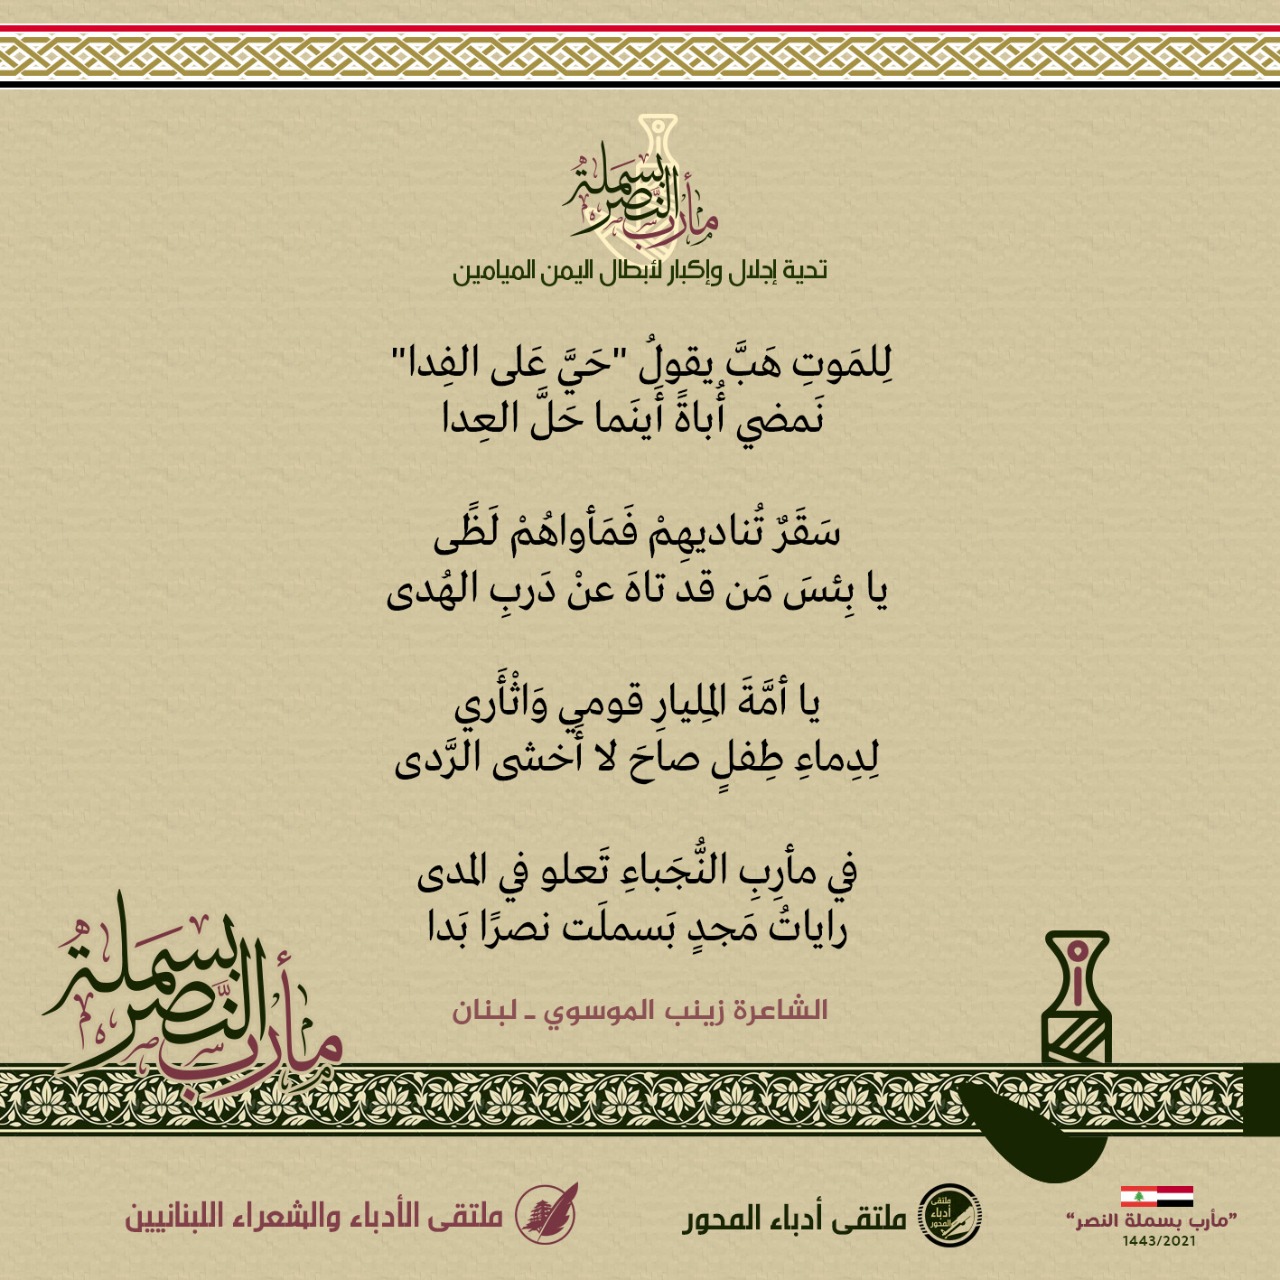 مأرب بسملة النصر
تحية إجلال وإكبار لأبطال اليمن الميامين
لِلمَوتِ هَبَّ يقولُ "حَيَّ عَلى الفِدا"
نَمضي أُباةً أَينَما حَلَّ العِدا
سَقَرٌ تُناديهِمْ فَمَأواهُمْ لَظًى
يا بِئسَ مَن قد تاهَ عنْ دَربِ الهُدى
يا أمَّةَ المِليارِ قومي وَاثْأَري
لِدِماءِ طِفلٍ صاحَ لا أَخشى الرَّدى
في مأرِبِ النُّجَباءِ تَعلو في المدى
راياتُ مَجدٍ بَسملَت نصرًا بَدا
الشاعرة زينب الموسوي ـ لبنان
مأرب بسملة النصر
"مأرب بسملة النصر"
1443/2021
ملتقى أدباء المحور
ملتقى أدباء المحور
ملتقى الأدباء والشعراء اللبنانيين